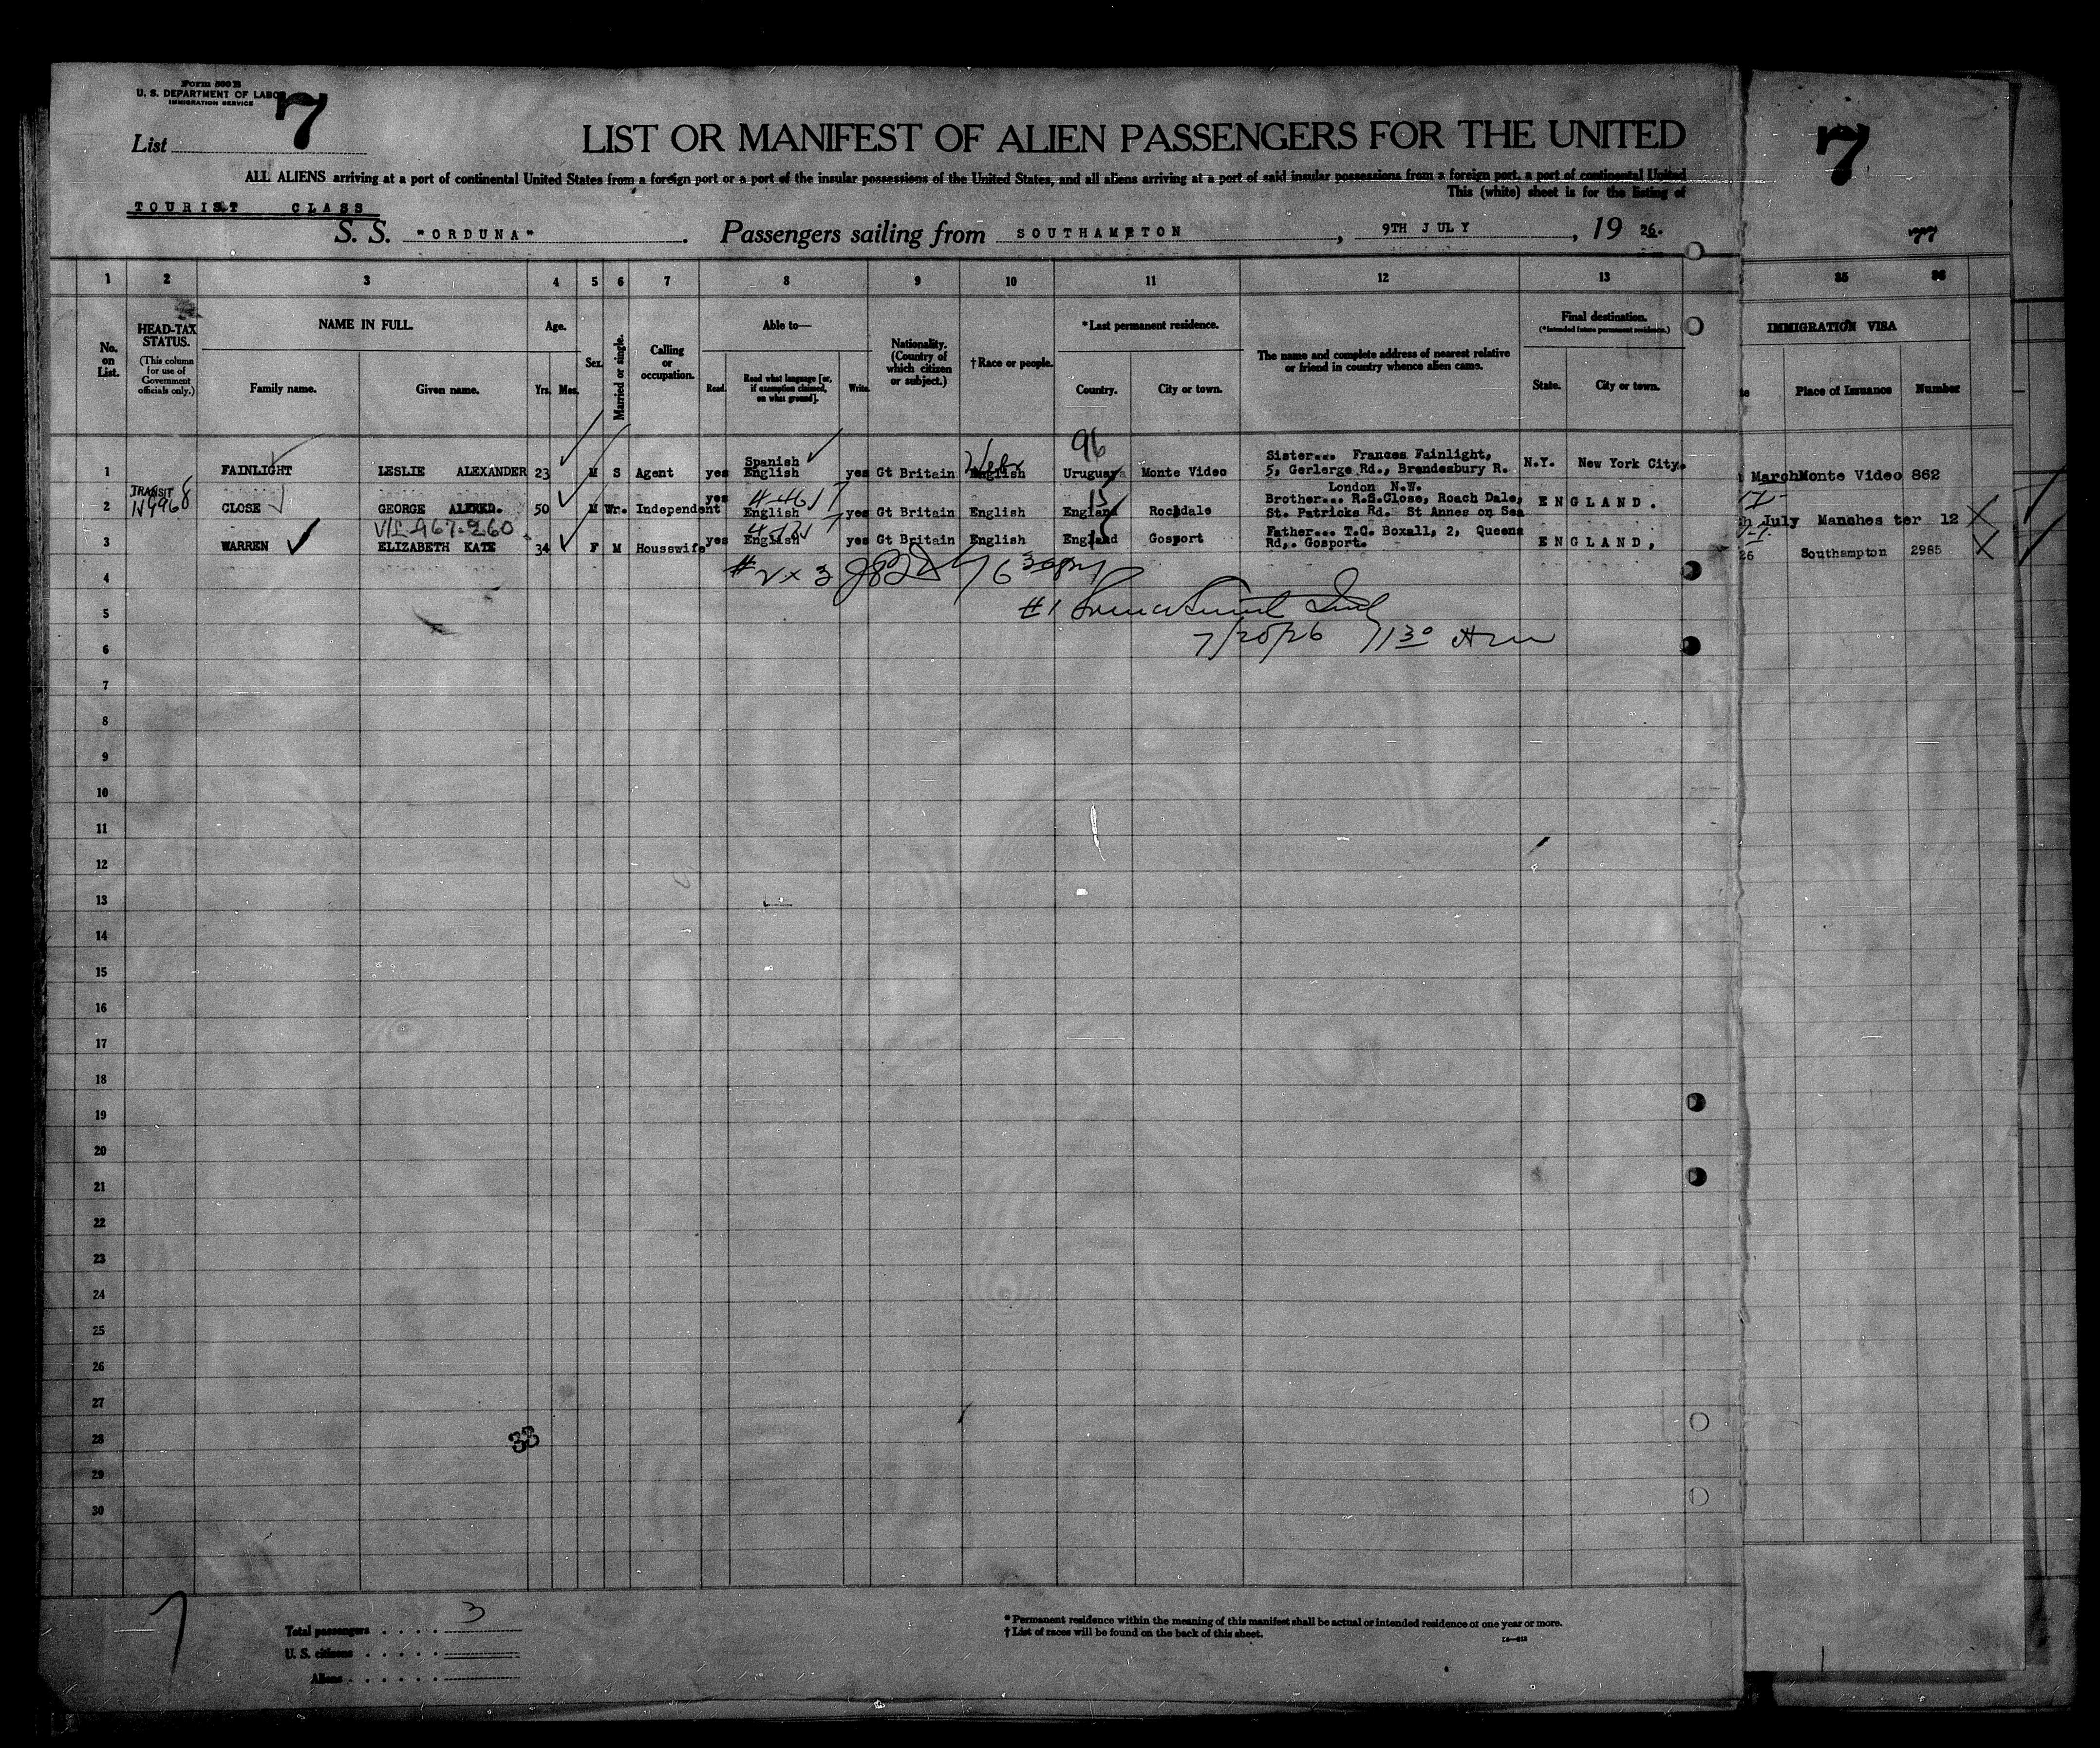 Form 500 B
U. S. DEPARTMENT OF LABOR
IMMIGRATION SERVICE
List 7
LIST OR MANIFEST OF ALIEN PASSENGERS FOR THE UNITED
7
ALL ALIENS arriving at a port of continental United States from a foreign port or a port of the insular possessions of the United States, and all aliens arriving at a port of said insular possessions from a foreign port, a port of continental United
This (white) sheet is for the listing of
TOURIST CLASS
S. S. "ORDUNA". Passengers sailing from SOUTHAMPTON, 9TH JULY, 19 26.
1 2 3 4 5 6 7 8 9 10 11 12 13 35 36
No. on List.
HEAD-TAX STATUS.
(This column for use of Government officials only.)
NAME IN FULL.
Family name. Given name.
Age.
Yrs. Mos.
Sex.
Married or single.
Calling or occupation.
Able to—
Read. Read what language [or, if exemption claimed, on what ground]. Write.
Nationality. (Country of which citizen or subject.)
†Race or people.
*Last permanent residence.
Country. City or town.
The name and complete address of nearest relative or friend in country whence alien came.
Final destination.
(*Intended future permanent residence.)
State. City or town.
IMMIGRATION VISA
Place of Issuance Number
96
1 FAINLIGHT LESLIE ALEXANDER 23 M S Agent yes Spanish English yes Gt Britain English Hebr Uruguay Monte Video Sister... Frances Fainlight, 5, Gerlerge Rd., Brandesbury R. London N.W. N.Y. New York City. March Monte Video 862
TRANSIT
2 CLOSE GEORGE ALFRED. 50 M Wr. Independent yes English yes Gt Britain English England Rochdale Brother... R.S.Close, Roach Dale, St. Patricks Rd. St Annes on Sea ENGLAND. July Manchester 12
3 WARREN ELIZABETH KATE 34 F M Housewife yes English yes Gt Britain English England Gosport Father... T.G. Boxall, 2, Queens Rd,. Gosport. ENGLAND, 26 Southampton 2985
4
5
#1
6
7/20/26
7
8
9
10
11
12
13
14
15
16
17
18
19
20
21
22
23
24
25
26
27
28
33
29
30
7
Total passengers . . . . 3
U. S. citizens . . . . .
Aliens . . . . . .
* Permanent residence within the meaning of this manifest shall be actual or intended residence of one year or more.
† List of races will be found on the back of this sheet.